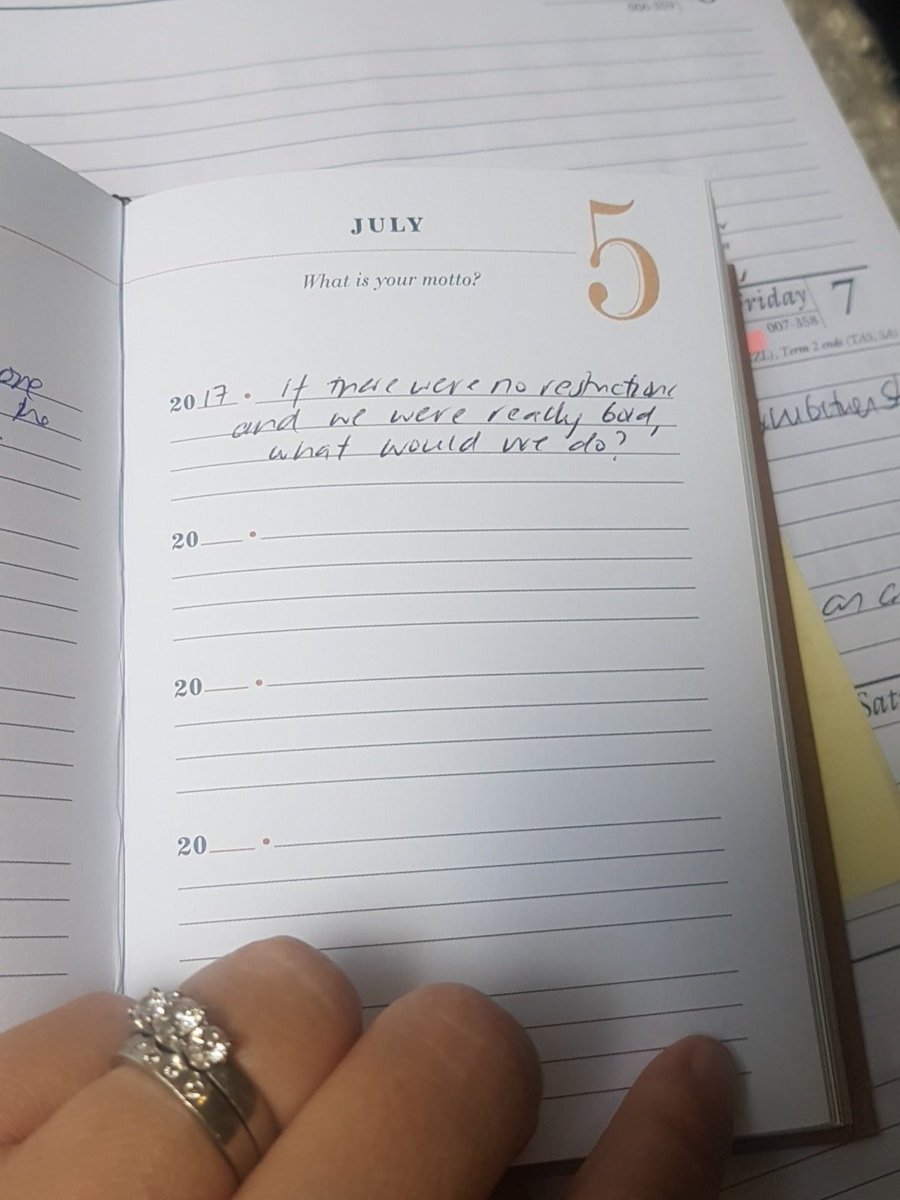 006-359
JULY
5
What is your motto?
2017 • If there were no restrictions
and we were really bold,
what would we do?
20 •
20 •
20 •
one
the
riday 7
007-358
ZL), Term 2 ends (TAS, SA)
an
Sat